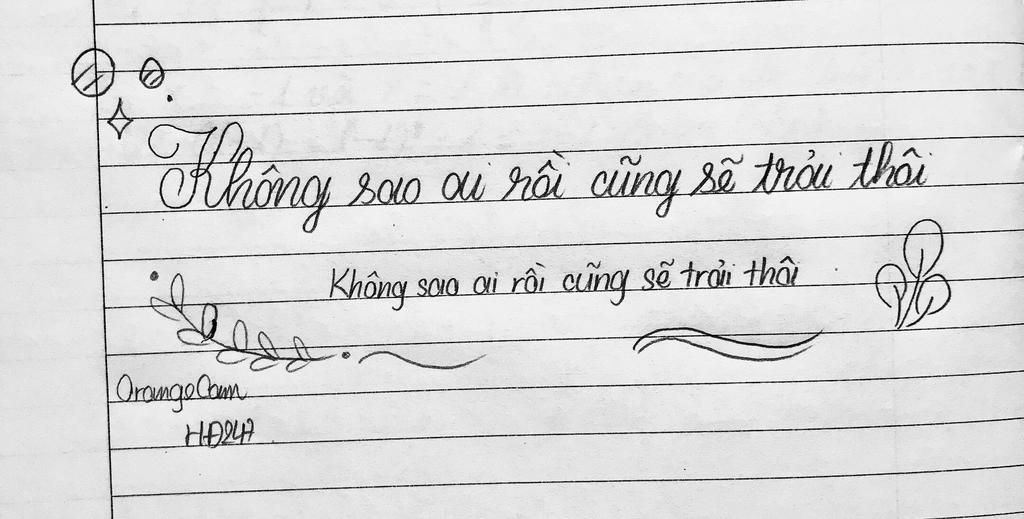 Không sao ai rồi cũng sẽ trải thôi
Không sao ai rồi cũng sẽ trải thôi
OrangeCam
HĐ247